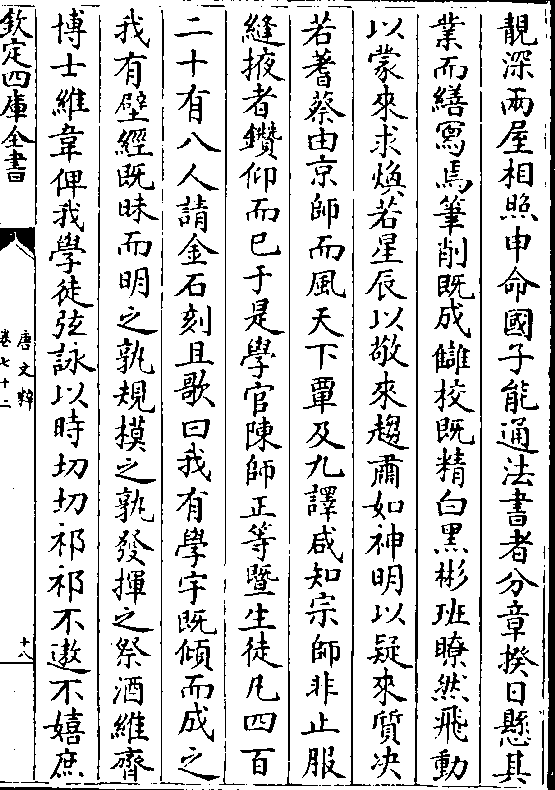 靚深兩屋相照申命國子能通法書者分章揆日懸其
業而繕寫焉筆削既成讎校既精白黑彬班瞭然飛動
以蒙來求煥若星辰以敬來趨肅如神明以疑來質决
若蓍蔡由京師而風天下覃及九譯咸知宗師非止服
縫掖者鑽仰而已于是學官陳師正等暨生徒凡四百
二十有八人請金石刻且歌曰我有學宇既傾而成之
我有壁經既昧而明之孰規模之孰發揮之祭酒維齊
博士維韋俾我學徒弦詠以時切切祁祁不遨不嬉庶
欽定四庫全書
唐文粹
卷七十二
十八